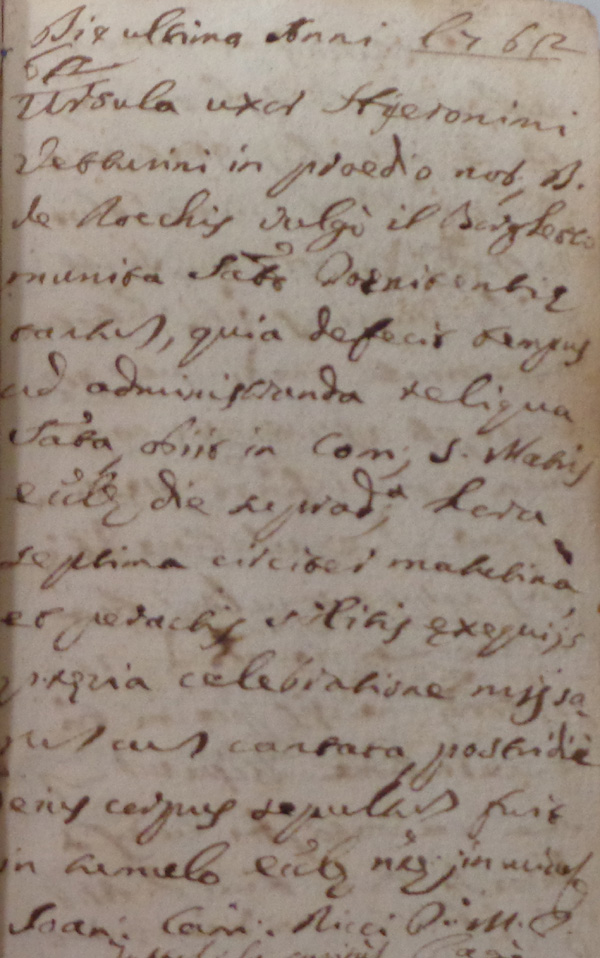 Die ultima Anni 1762
Ursula uxor Hyeronimi
Vetturini in praedio nob; B.
de Rocchis vulgò il Borghetto
munita Sac̃to Poenitentię
tantum, quia defecit tempus
ad administranda reliqua
Sac̃ta, obiit in Com; S. Matris
eccl̃ę die suprad;ᵃ hora
septima circiter matutina,
et peractis solitis exequiis
praevia celebratione missa
rum cum cantata, postridiè
eius corpus sepultum fuit
in tumulo eccl̃ę nr̃ę; in
Joan: Cam: Ricci